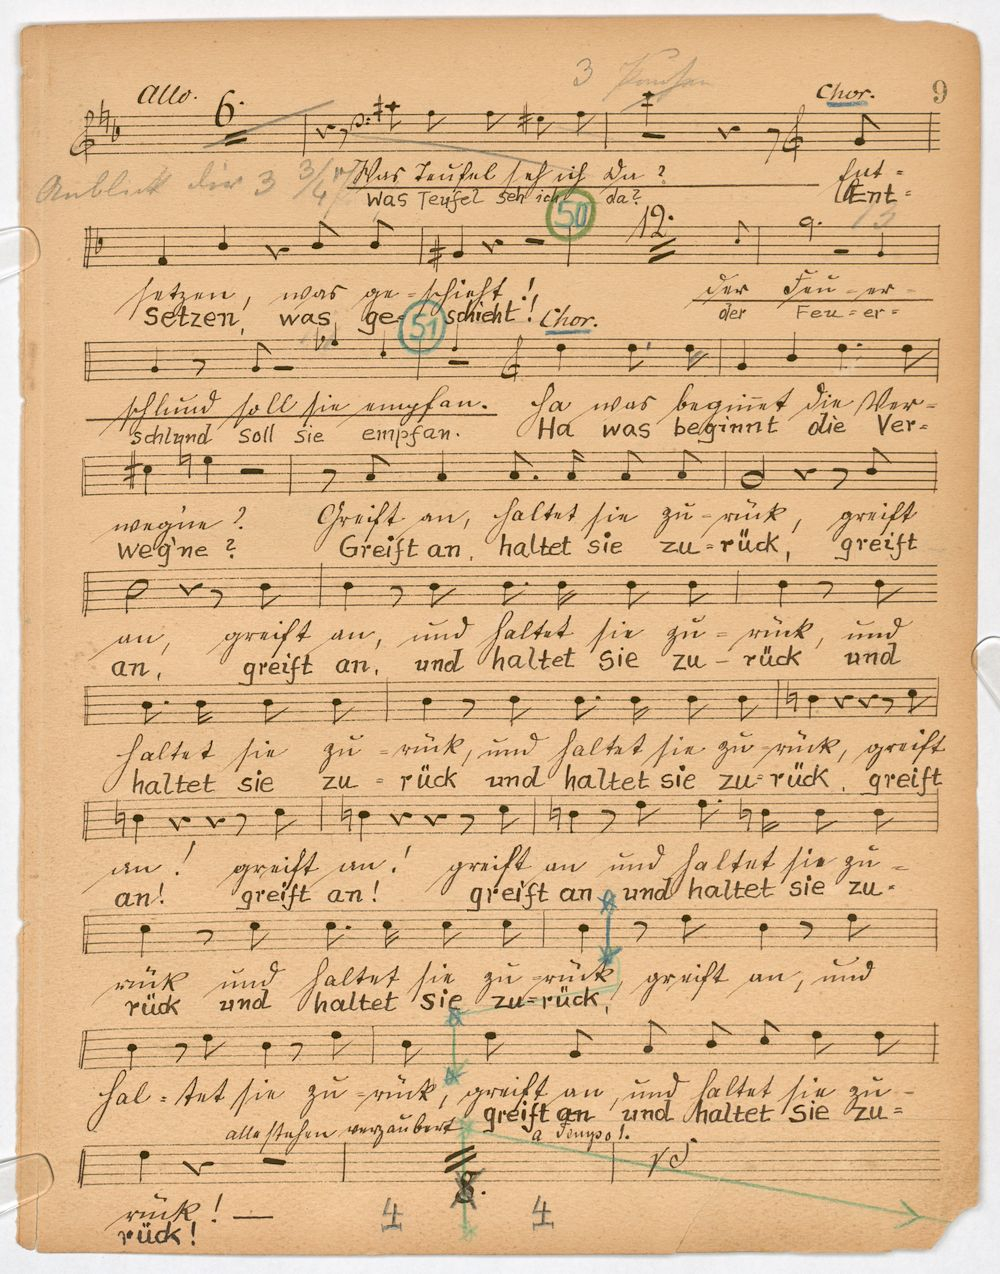 3 Pausen
Allo. 6. Chor. 9
Anblick der 3 3/4
Was Teufel seh ich da? Ent-
Was Teufel seh ich da? Ent-
50 12. 9. 13
setzen, was ge-schieht! der Feu-er-
Setzen, was ge-schieht! der Feu-er-
51 Chor.
schlund soll sie empfan. Ha was beginnet die Ver-
schlund soll sie empfan. Ha was beginnt die Ver-
weg'ne? Greift an, haltet sie zu-rück, greift
weg'ne? Greift an, haltet sie zu-rück, greift
an, greift an, und haltet sie zu-rück, und
an, greift an, und haltet sie zu-rück und
haltet sie zu-rück, und haltet sie zu-rück, greift
haltet sie zu-rück und haltet sie zu-rück, greift
an! greift an! greift an und haltet sie zu-
an! greift an! greift an und haltet sie zu-
rück und haltet sie zu-rück, greift an, und
rück und haltet sie zu-rück,
hal-tet sie zu-rück, greift an, und haltet sie zu-
greift an und haltet sie zu-
alle stehen verzaubert a Tempo!.
8. VS
rück! —
rück! 4 4